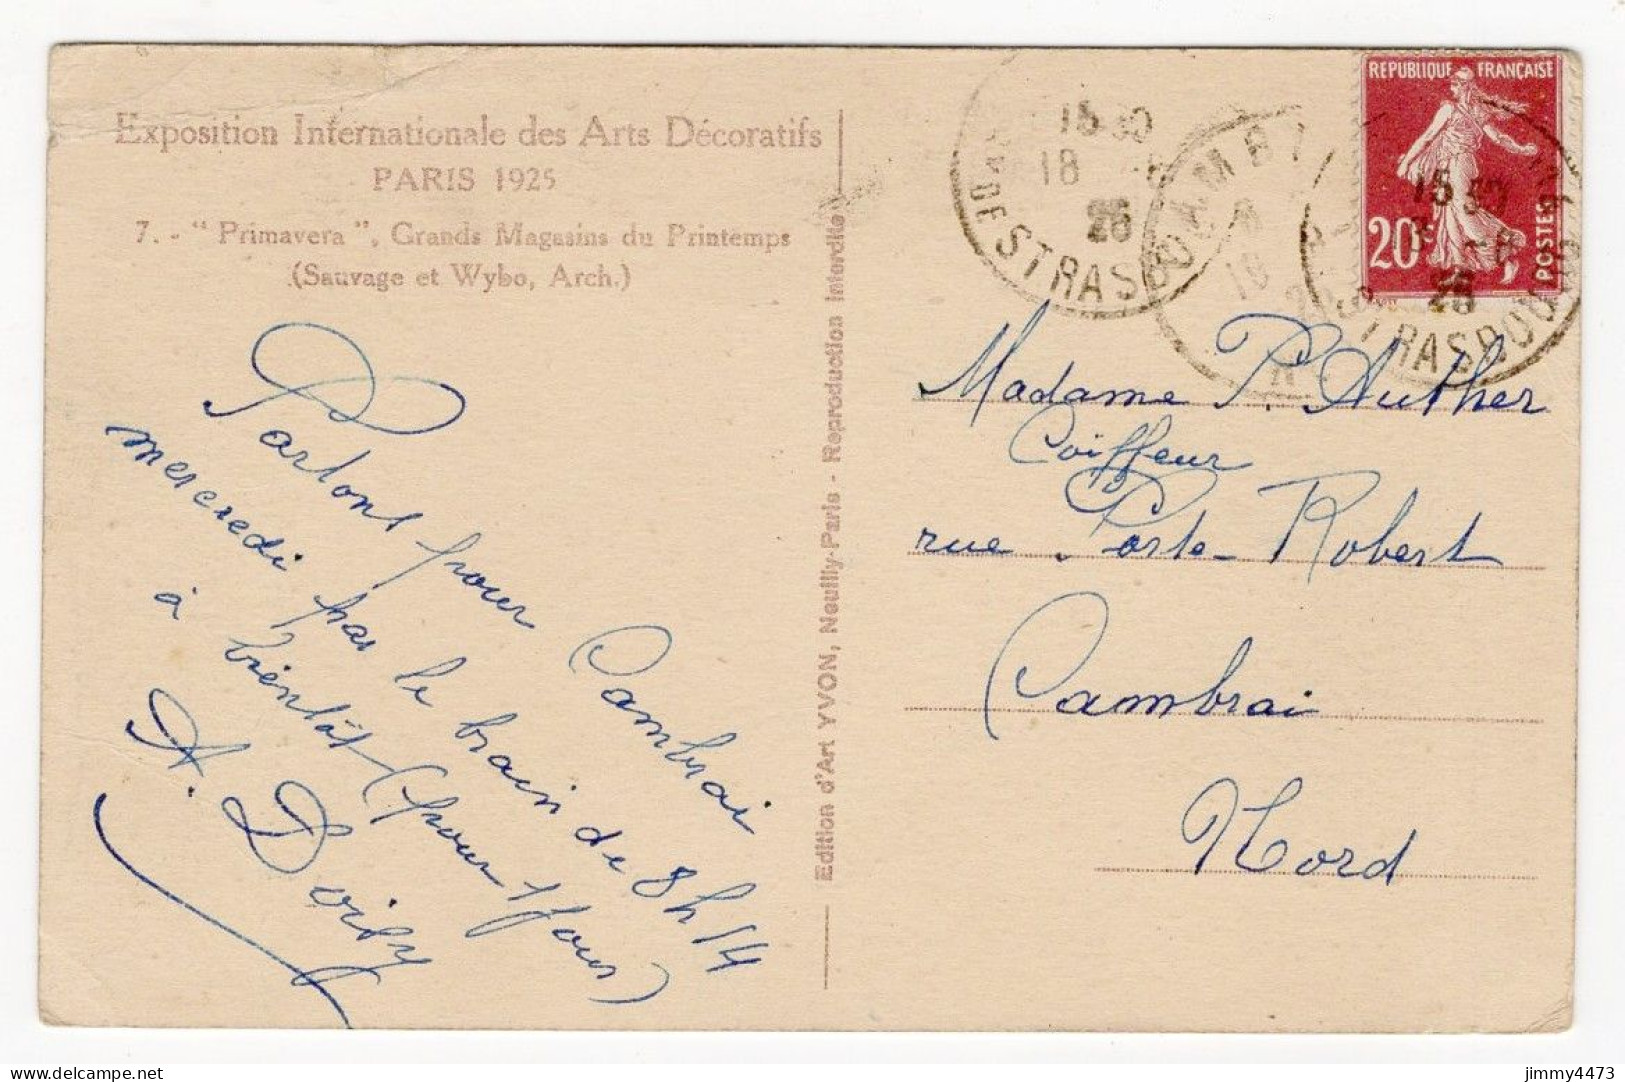 Exposition Internationale des Arts Décoratifs
PARIS 1925
7. - " Primavera ", Grands Magasins du Printemps
(Sauvage et Wybo, Arch.)
Partons pour Cambrai
mercredi par le train de 8h14
à bientôt (pour 1 jour)
A.
Edition d'Art YVON, Neuilly-Paris - Reproduction Interdite
REPUBLIQUE FRANÇAISE
20c
POSTES
15 30
18
26
DE STRASBOURG
CAMBRAI
15 30
26
STRASBOURG
Madame P. Auther
Coiffeur
rue Porte-Robert
Cambrai
Nord
jimmy4473